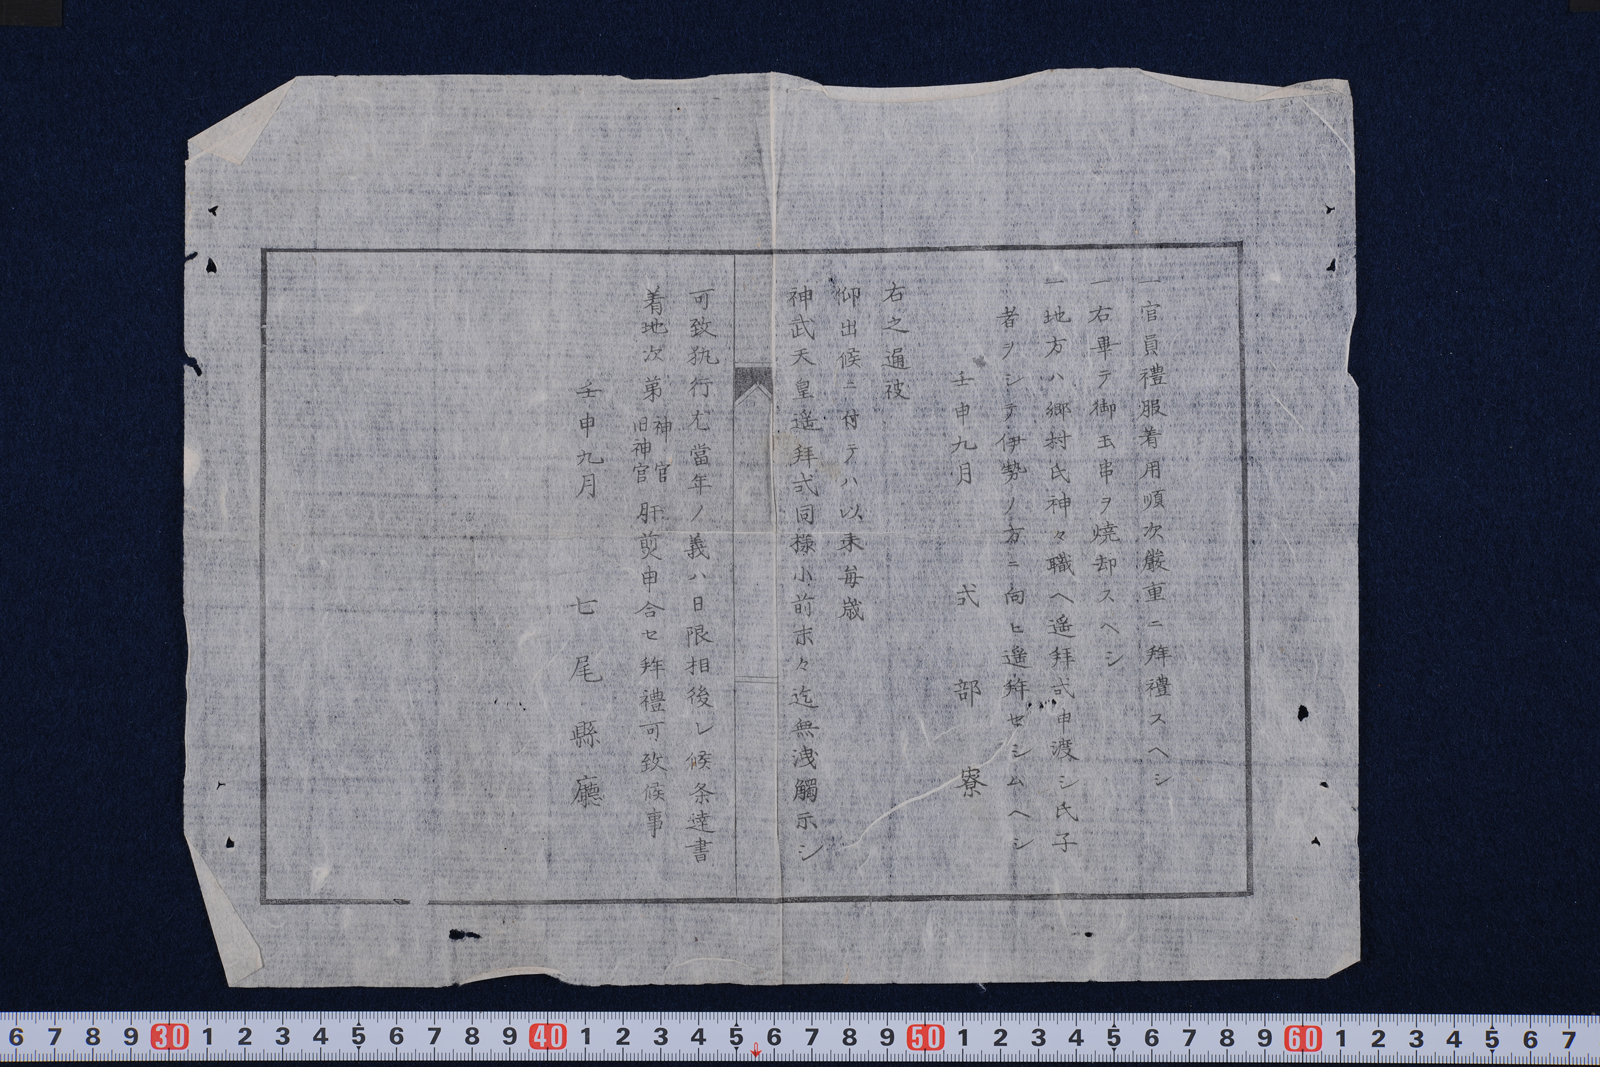 一官員禮服着用順次嚴重ニ拜禮スヘシ
一右畢テ御玉串ヲ燒却スヘシ
一地方ハ郷村氏神々職ヘ遥拜式申渡シ氏子
者ヲシテ伊勢ノ方ニ向ヒ遥拜セシムヘシ
壬申九月 式部寮
右之通被
仰出候ニ付テハ以来毎歳
神武天皇遥拜式同様小前末々迄無洩觸示シ
可致執行尤當年ノ義ハ日限相後レ候条達書
着地次第神官旧神官肝煎申合セ拜禮可致候事
壬申九月 七尾縣廳
6 7 8 9 30 1 2 3 4 5 6 7 8 9 40 1 2 3 4 5 6 7 8 9 50 1 2 3 4 5 6 7 8 9 60 1 2 3 4 5 6 7